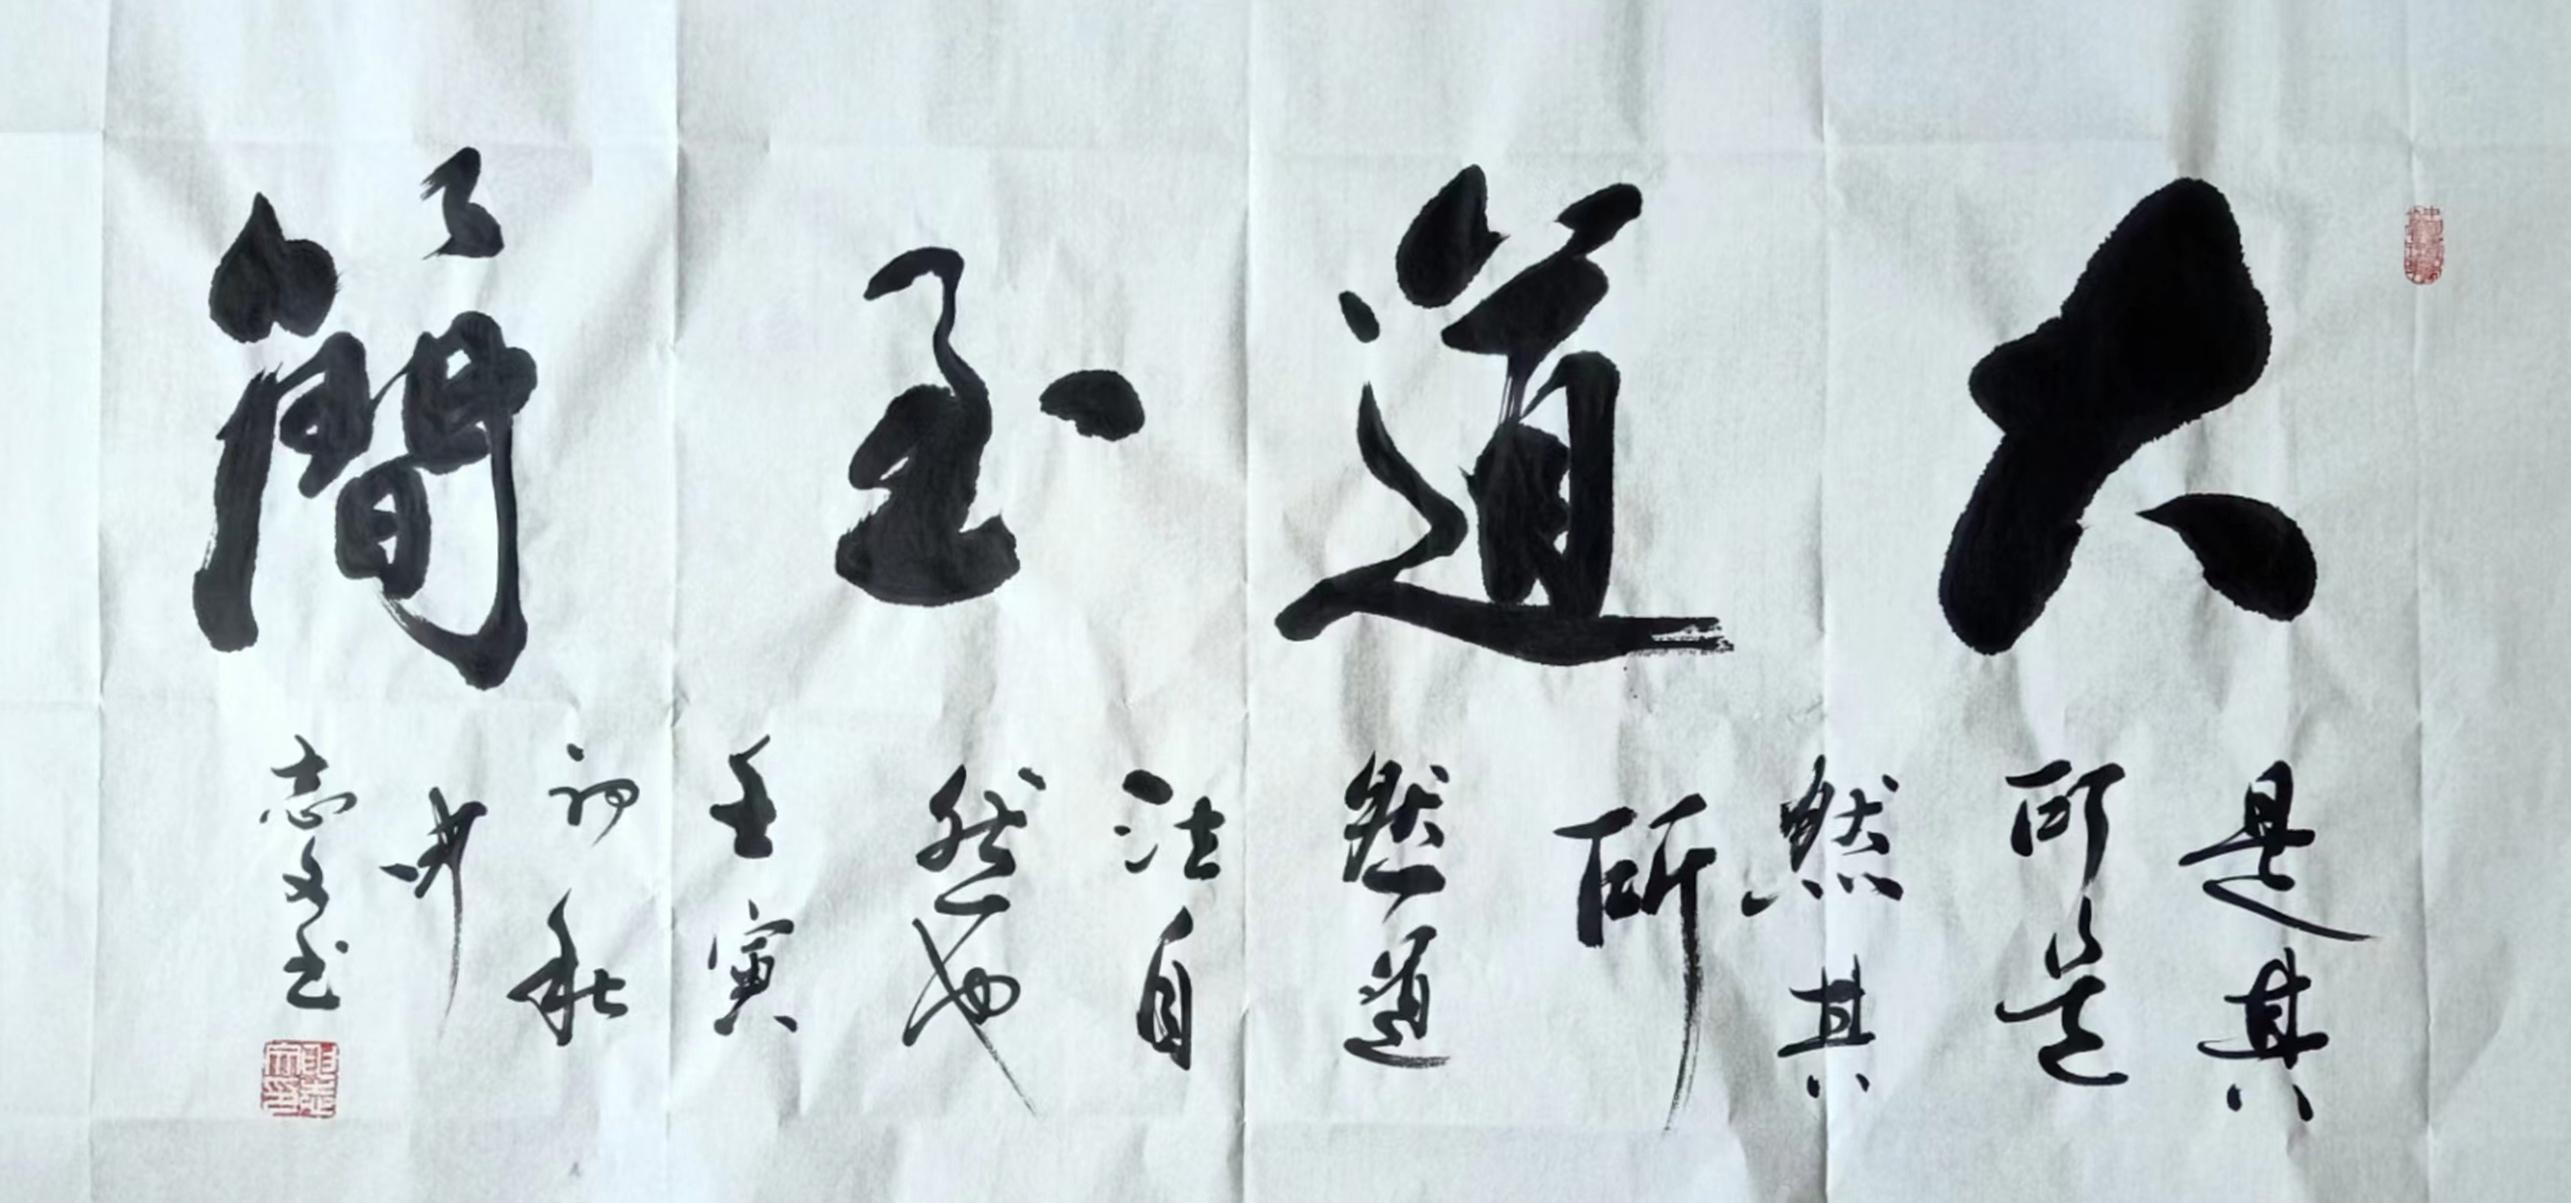 大道至簡
是其
所是
然其
所
然道
法自
然也
壬寅
初秋
尹
志文書